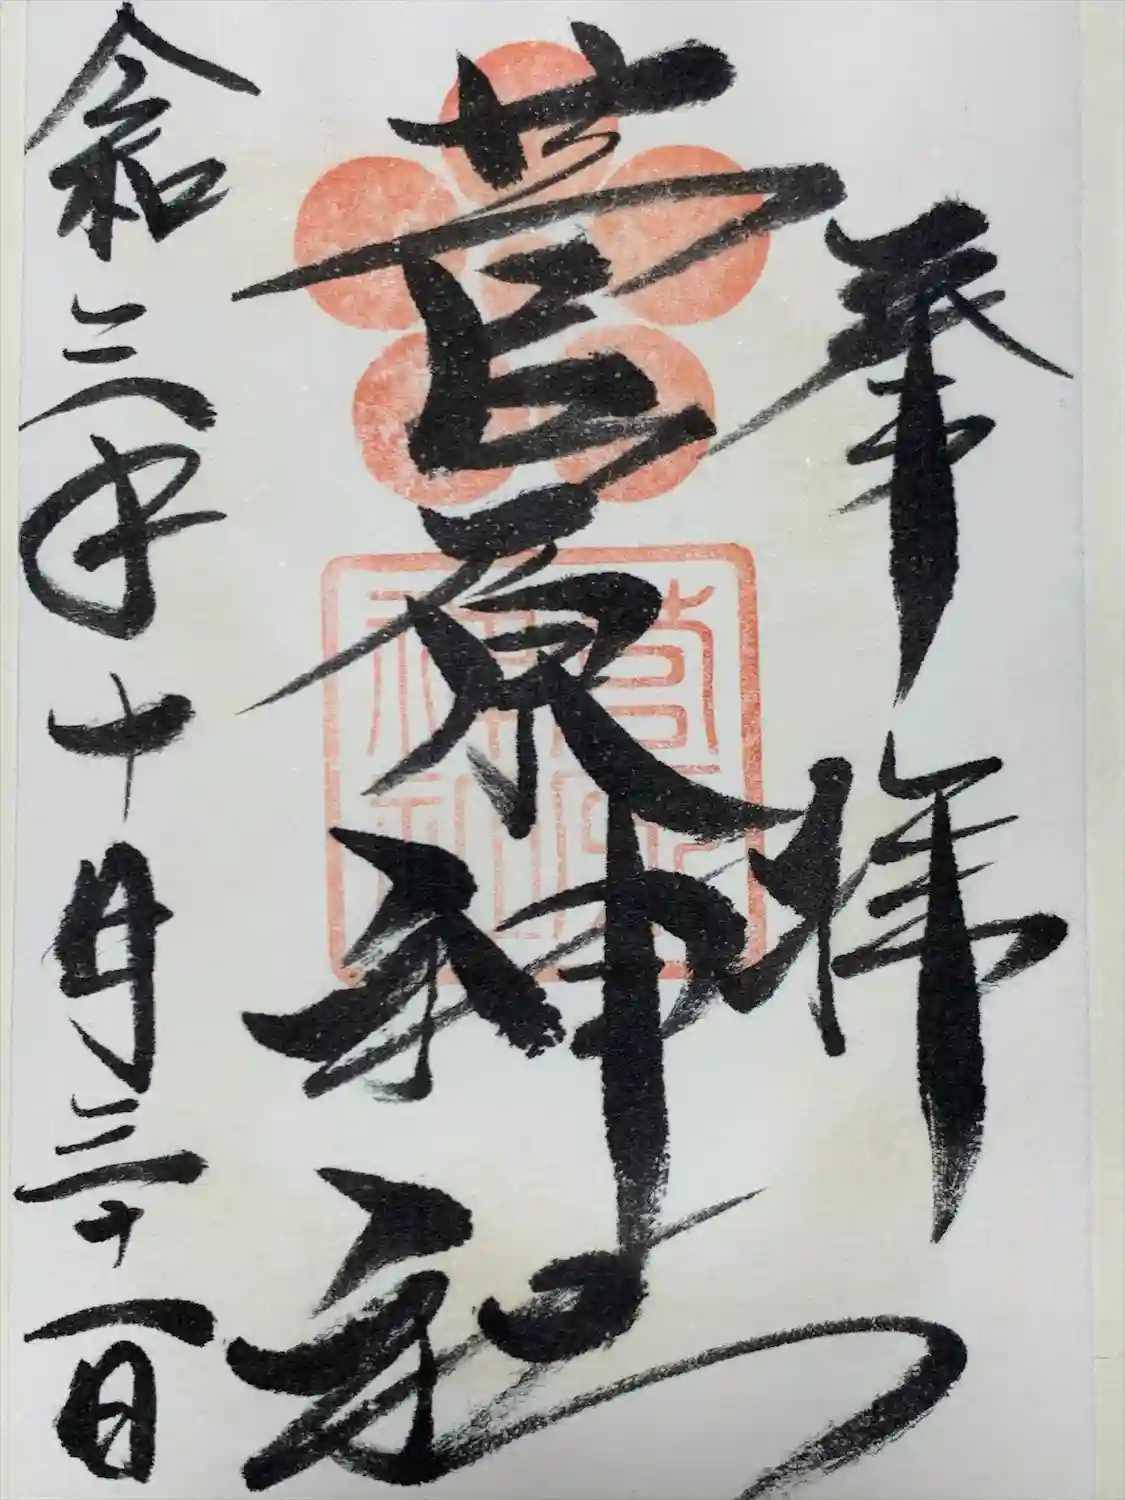 奉拝
菅原神社
菅原神社
令和三年十月三十一日